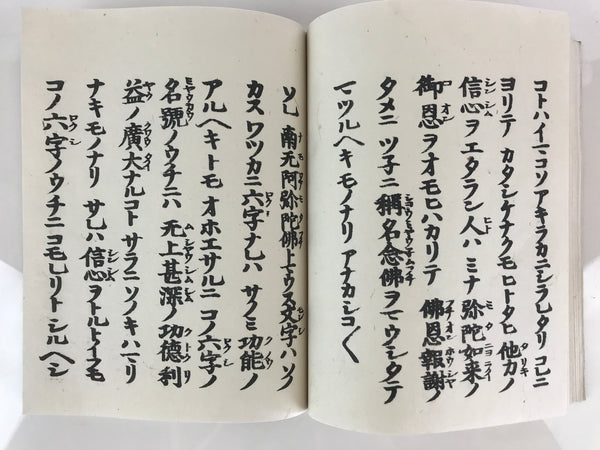 コトハイマコソアキラカニシラレタリ コレニ
ヨリテ カタシケナクモ ヒトタヒ 他力ノ
信心ヲエタラン人ハ ミナ 弥陀如来ノ
御恩ヲオモヒハカリテ 佛恩報謝ノ
タメニ ツ子ニ 稱名念佛ヲマウシタテ
マツルヘキモノナリ アナカシコ〱
ソレ 南无阿弥陀佛トマウス文字ハ ソノ
カスワツカニ六字ナレハ サノミ功能ノ
アルヘキトモ オホエサルニ コノ六字ノ
名號ノウチニハ 无上甚深ノ功徳利
益ノ廣大ナルコト サラニソノキハマリ
ナキモノナリ サレハ 信心ヲトルトイフモ
コノ六字ノウチニコモレリト シルヘシ